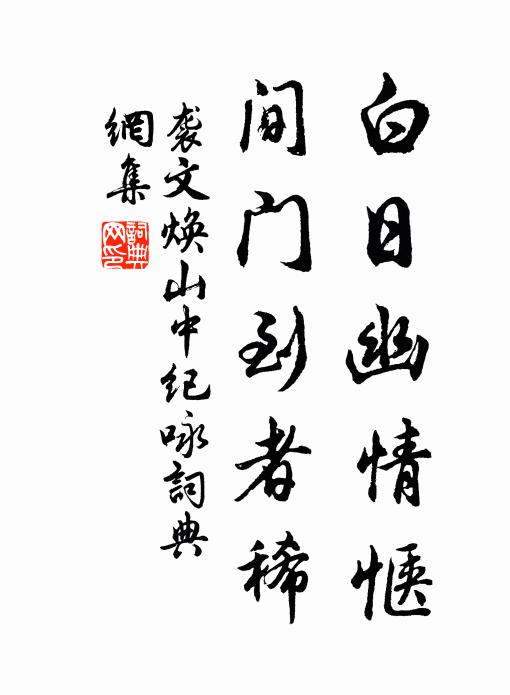 白日幽情惬
间门到者稀
袭文焕山中纪咏詞典
網集
詞典
网印